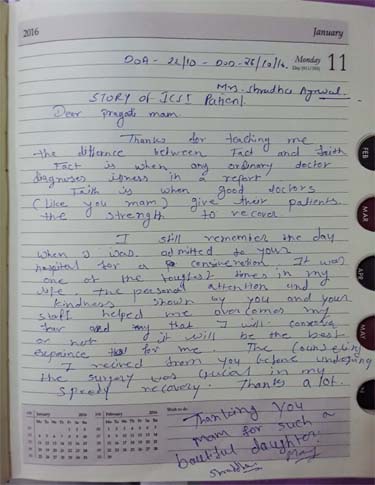 2016
January
DOA - 22/10 - DOD - 26/10/16.
Monday 11
Mrs. Shradha Agrawal
STORY OF ICSI Patient.
Dear pragati mam
Thanks for teaching me
the diffrence between Fact and faith
Fact is when any ordinary doctor
Diagnoses illness in a report
Faith is when good doctors
(like you mam) give their patients
the strength to recover
I still remember the day
when I was admitted to your
hospital for a It was
one of the toughest times in my
life. The personal attention and
kindness shown by you and your
staff helped me overcomes my
fear and that I will conceive
or not it will be the best
for me. The counseling
I recived from you before undergoing
the surgery was crucial in my
speedy recovery. Thanks a lot.
Thanking You
mam for such a
bautiful daughter.
Shradha
FEB
MAR
APR
MAY
January 2016
February 2016